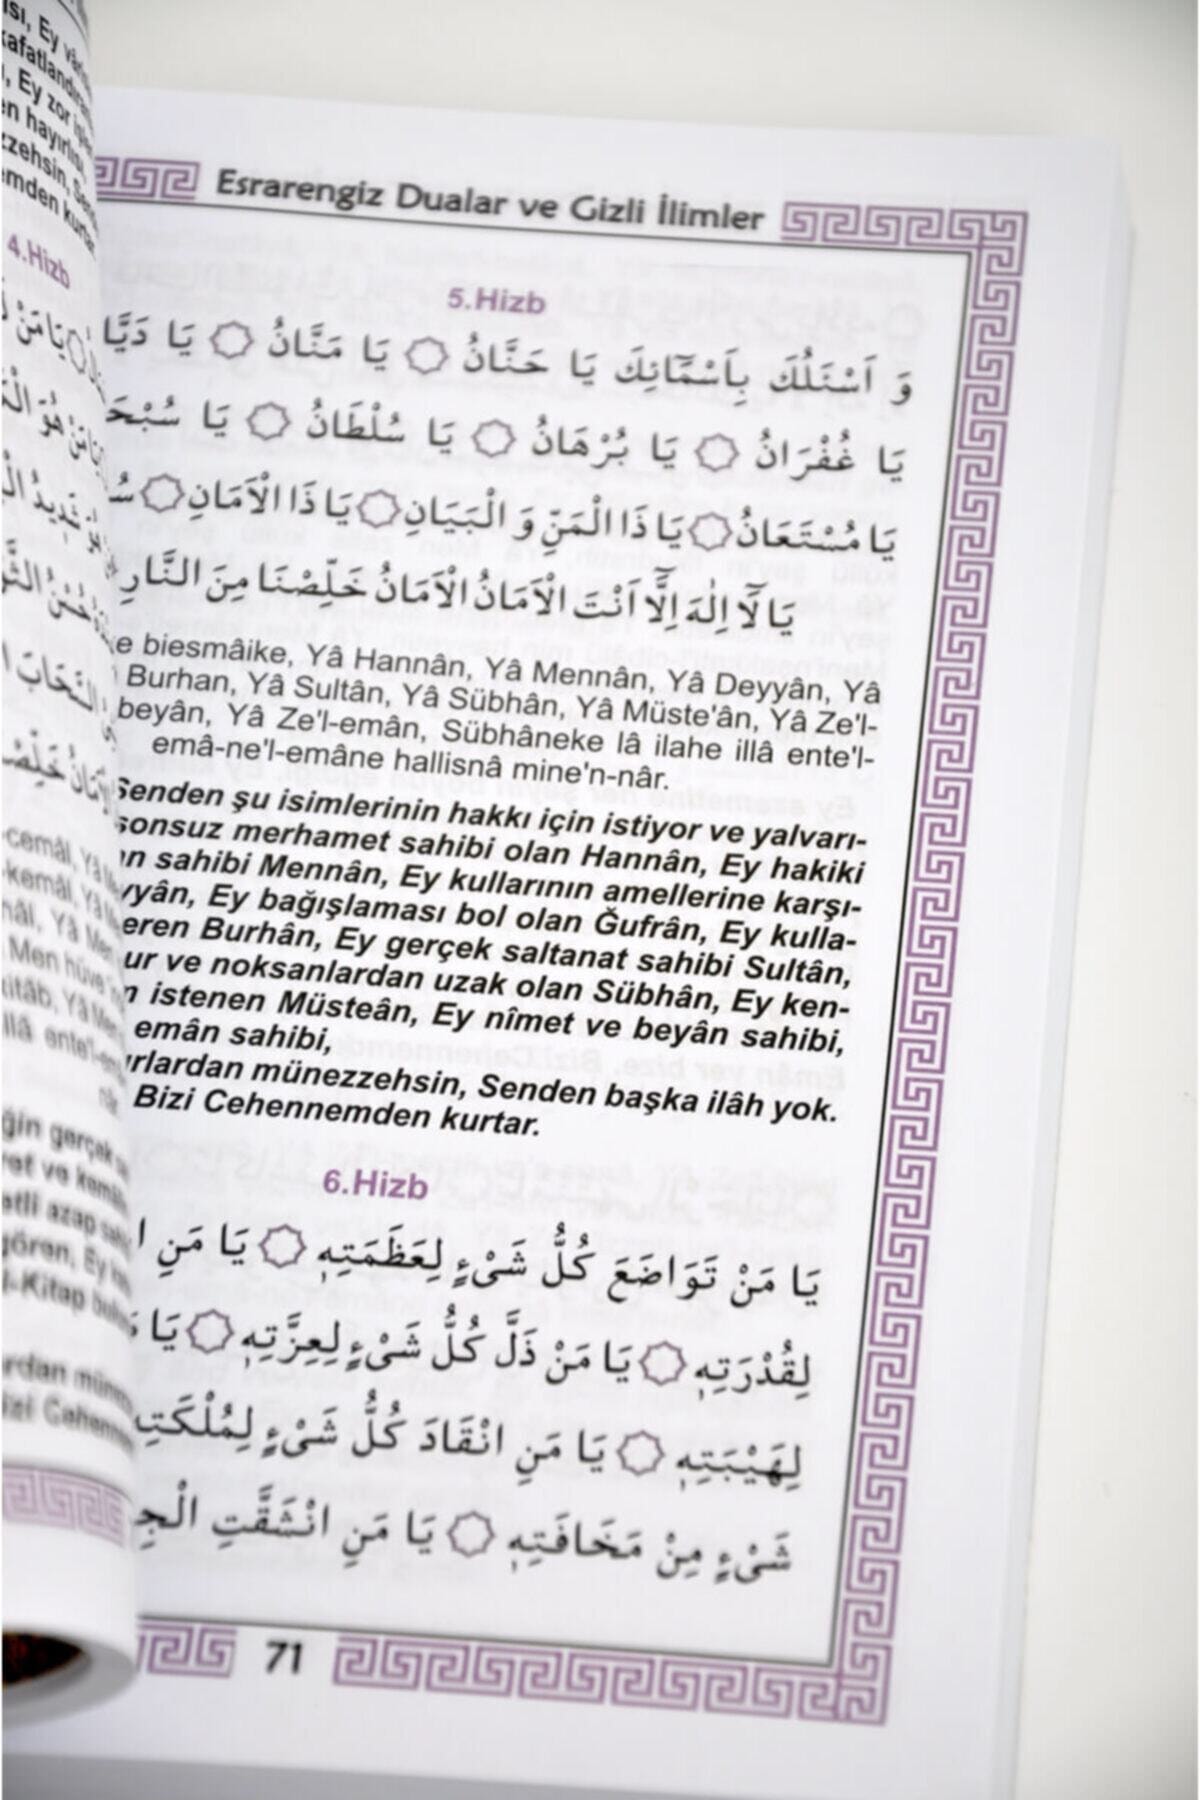 4.Hizb
Esrarengiz Dualar ve Gizli İlimler
5.Hizb
وَ اَسْئَلُكَ بِاَسْمَائِكَ يَا حَنَّانُ ۞ يَا مَنَّانُ ۞ يَا دَيَّا
يَا غُفْرَانُ ۞ يَا بُرْهَانُ ۞ يَا سُلْطَانُ ۞ يَا سُبْحَ
يَا مُسْتَعَانُ ۞ يَا ذَا الْمَنِّ وَ الْبَيَانِ ۞ يَا ذَا الْاَمَانِ ۞ سُ
يَا لَٓا اِلٰهَ اِلَّٓا اَنْتَ الْاَمَانُ الْاَمَانُ خَلِّصْنَا مِنَ النَّارِ
ke biesmâike, Yâ Hannân, Yâ Mennân, Yâ Deyyân, Yâ
Burhan, Yâ Sultân, Yâ Sübhân, Yâ Müste'ân, Yâ Ze'l-
beyân, Yâ Ze'l-emân, Sübhâneke lâ ilahe illâ ente'l-
emâ-ne'l-emâne hallisnâ mine'n-nâr.
Senden şu isimlerinin hakkı için istiyor ve yalvarı-
sonsuz merhamet sahibi olan Hannân, Ey hakiki
an sahibi Mennân, Ey kullarının amellerine karşı-
yyân, Ey bağışlaması bol olan Ğufrân, Ey kulla-
eren Burhân, Ey gerçek saltanat sahibi Sultân,
ur ve noksanlardan uzak olan Sübhân, Ey ken-
n istenen Müsteân, Ey nîmet ve beyân sahibi,
emân sahibi,
urlardan münezzehsin, Senden başka ilâh yok.
Bizi Cehennemden kurtar.
6.Hizb
يَا مَنْ تَوَاضَعَ كُلُّ شَىْءٍ لِعَظَمَتِهٖ ۞ يَا مَنِ ا
لِقُدْرَتِهٖ ۞ يَا مَنْ ذَلَّ كُلُّ شَىْءٍ لِعِزَّتِهٖ ۞ يَا مَ
لِهَيْبَتِهٖ ۞ يَا مَنِ انْقَادَ كُلُّ شَىْءٍ لِمُلْكَتِ
شَىْءٍ مِنْ مَخَافَتِهٖ ۞ يَا مَنِ انْشَقَّتِ الْجِ
71